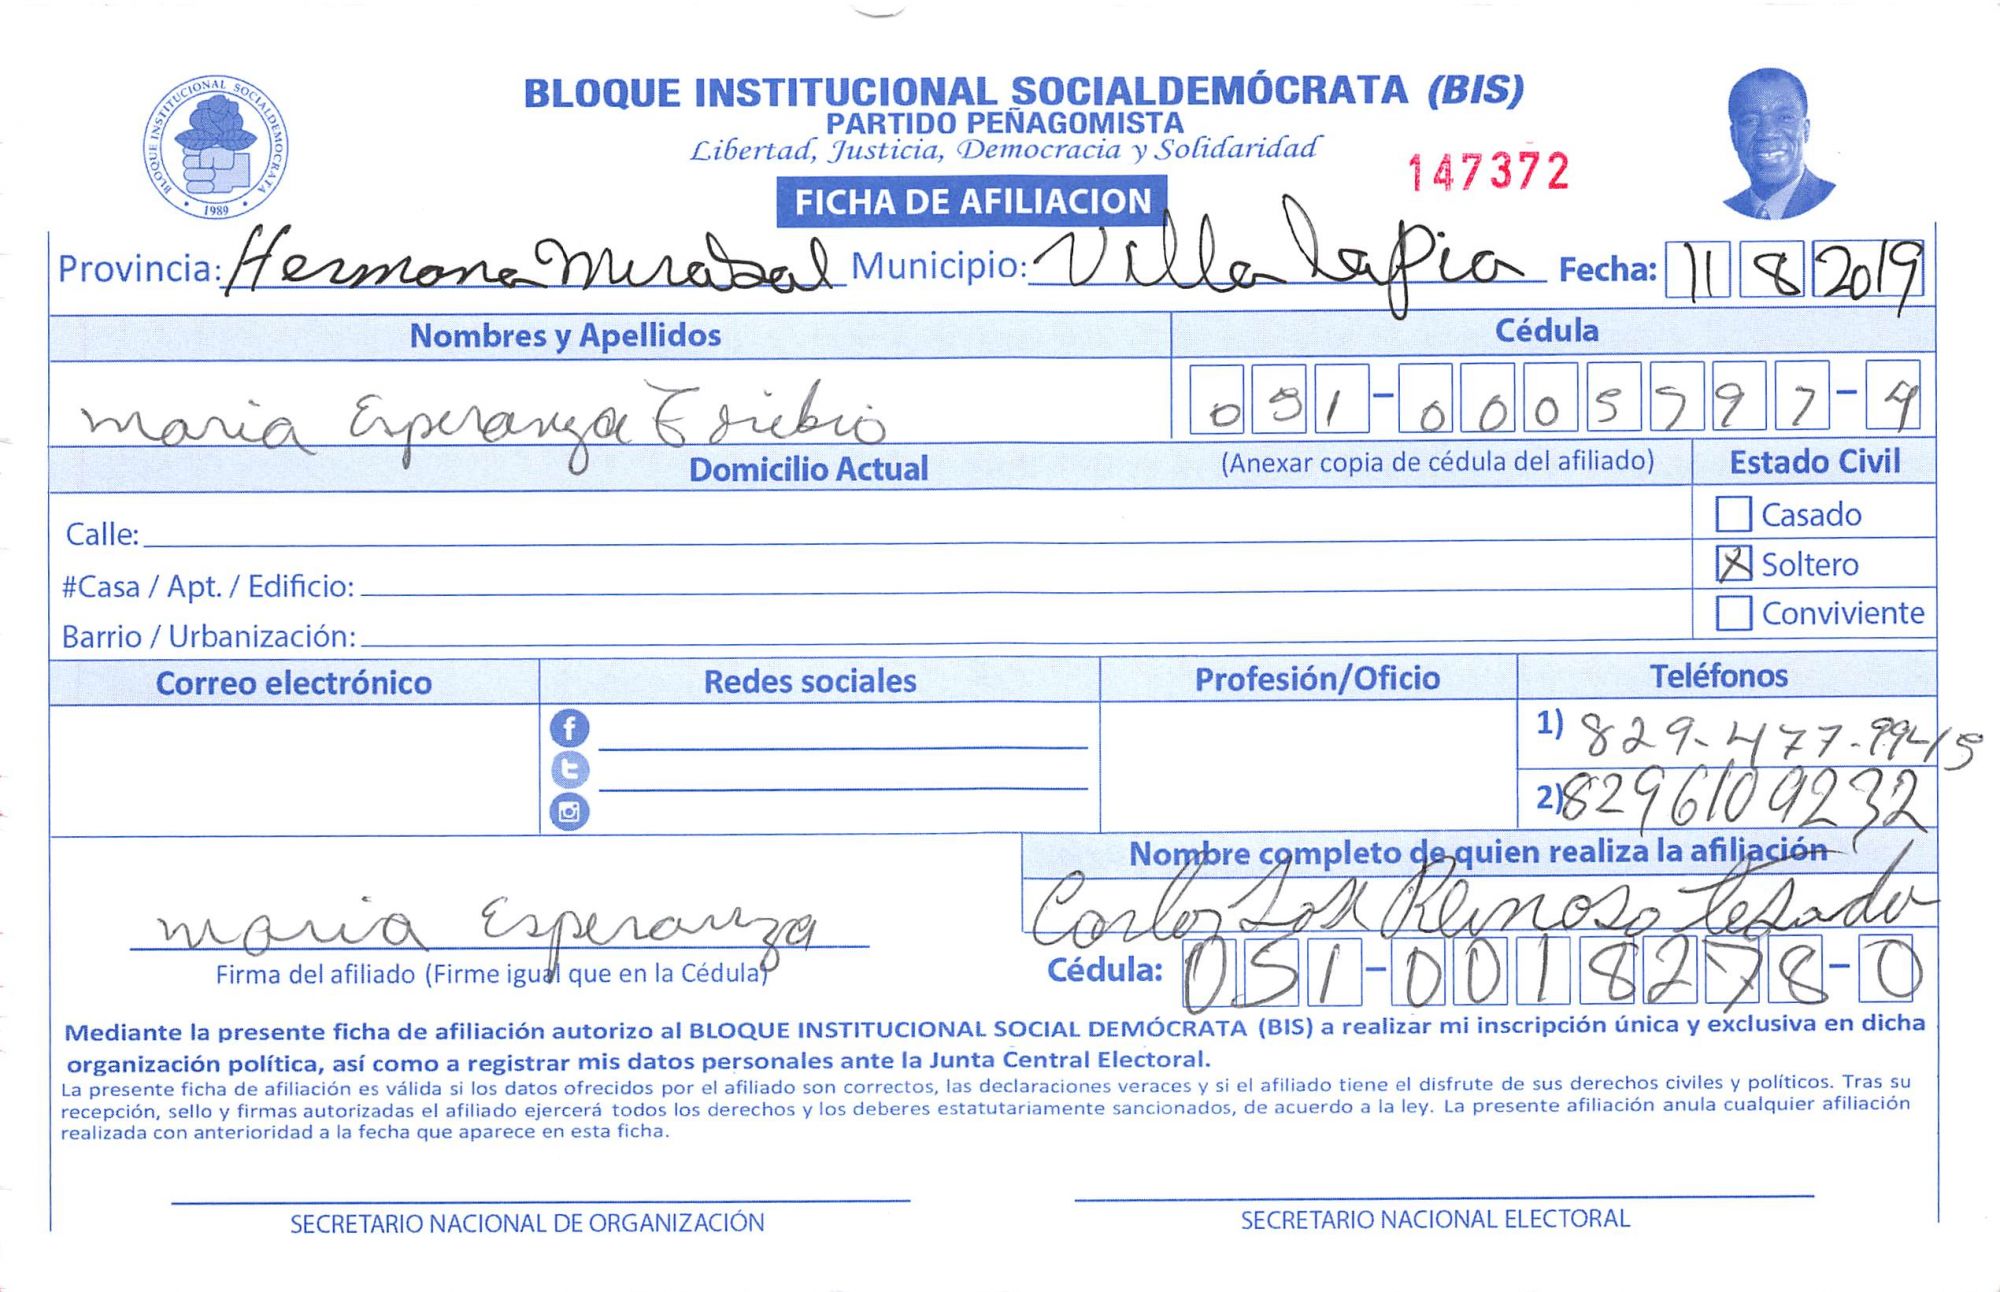 BLOQUE INSTITUCIONAL SOCIALDEMÓCRATA
1989
BLOQUE INSTITUCIONAL SOCIALDEMÓCRATA (BIS)
PARTIDO PEÑAGOMISTA
Libertad, Justicia, Democracia y Solidaridad
147372
FICHA DE AFILIACION
Provincia: Hermana Mirabal Municipio: Villa Tapia Fecha: 11 8 2019
Nombres y Apellidos Cédula
Maria Esperanza 051-0005797-4
Domicilio Actual (Anexar copia de cédula del afiliado) Estado Civil
Calle: Casado
#Casa / Apt. / Edificio: X Soltero
Barrio / Urbanización: Conviviente
Correo electrónico Redes sociales Profesión/Oficio Teléfonos
1) 829-477-9915
2) 8296109232
Nombre completo de quien realiza la afiliación
Maria Esperanza Carlos José Reinoso
Firma del afiliado (Firme igual que en la Cédula) Cédula: 051-0018278-0
Mediante la presente ficha de afiliación autorizo al BLOQUE INSTITUCIONAL SOCIAL DEMÓCRATA (BIS) a realizar mi inscripción única y exclusiva en dicha
organización política, así como a registrar mis datos personales ante la Junta Central Electoral.
La presente ficha de afiliación es válida si los datos ofrecidos por el afiliado son correctos, las declaraciones veraces y si el afiliado tiene el disfrute de sus derechos civiles y políticos. Tras su
recepción, sello y firmas autorizadas el afiliado ejercerá todos los derechos y los deberes estatutariamente sancionados, de acuerdo a la ley. La presente afiliación anula cualquier afiliación
realizada con anterioridad a la fecha que aparece en esta ficha.
SECRETARIO NACIONAL DE ORGANIZACIÓN SECRETARIO NACIONAL ELECTORAL